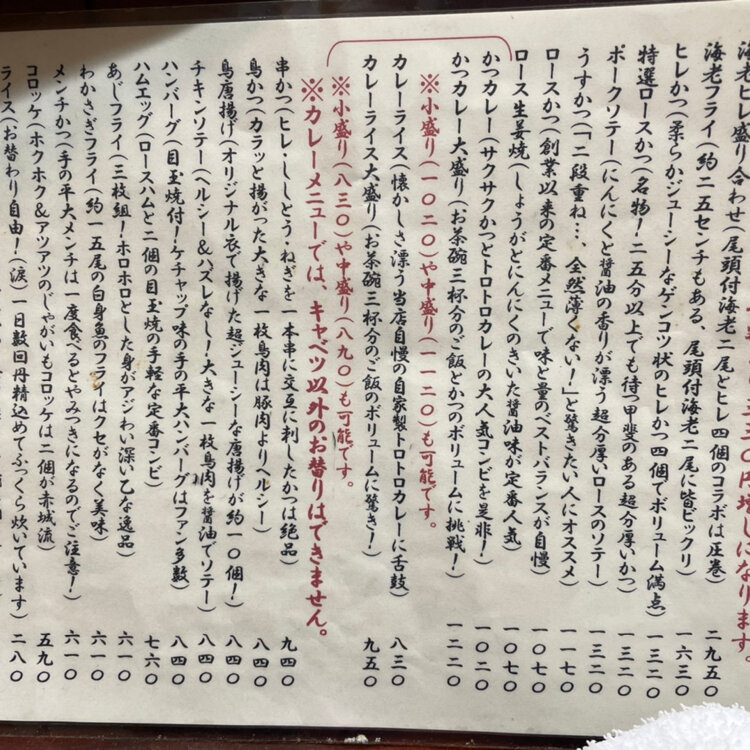 円増しになります。
海老ヒレ盛り合わせ（尾頭付海老二尾とヒレ四個のコラボは圧巻）二九五〇
海老フライ（約二五センチもある、尾頭付海老二尾に皆ビックリ）一六三〇
ヒレかつ（柔らかジューシーなゲンコツ状のヒレかつ四個でボリューム満点）一三二〇
特選ロースかつ（名物！二五分以上でも待つ甲斐のある超分厚いかつ）一三二〇
ポークソテー（にんにくと醤油の香りが漂う超分厚いロースのソテー）一三二〇
うすかつ（「二段重ね…、全然薄くない！」と驚きたい人にオススメ）一一七〇
ロースかつ（創業以来の定番メニューで味と量のベストバランスが自慢）一〇七〇
ロース生姜焼（しょうがとにんにくのきいた醤油味が定番人気）一〇七〇
かつカレー（サクサクかつとトロトロカレーの大人気コンビを是非！）一〇二〇
かつカレー大盛り（お茶碗三杯分のご飯とかつのボリュームに挑戦！）一二二〇
※小盛り（一〇二〇）や中盛り（一一二〇）も可能です。
カレーライス（懐かしさ漂う当店自慢の自家製トロトロカレーに舌鼓）八三〇
カレーライス大盛り（お茶碗三杯分のご飯のボリュームに驚き！）九五〇
※小盛り（八三〇）や中盛り（八九〇）も可能です。
※カレーメニューでは、キャベツ以外のお替りはできません。
串かつ（ヒレ・ししとう・ねぎを一本串に交互に刺したかつは絶品）九四〇
鳥かつ（カラッと揚がった大きな一枚鳥肉は豚肉よりヘルシー）八四〇
鳥唐揚げ（オリジナル衣で揚げた超ジューシーな唐揚げが約一〇個！）八四〇
チキンソテー（ヘルシー＆ハズレなし！大きな一枚鳥肉を醤油でソテー）八四〇
ハンバーグ（目玉焼付！ケチャップ味の手の平大ハンバーグはファン多数）八四〇
ハムエッグ（ロースハムと二個の目玉焼の手軽な定番コンビ）七六〇
あじフライ（三枚組！ホロホロとした身がアジわい深い乙な逸品）六一〇
わかさぎフライ（約一五尾の白身魚のフライはクセがなく美味）六一〇
メンチかつ（手の平大メンチは一度食べるとやみつきになるのでご注意！）六一〇
コロッケ（ホクホク＆アツアツのじゃがいもコロッケは二個が赤城流）五九〇
ライス（お替わり自由！（涙）一日数回丹精込めてふっくら炊いています）二八〇